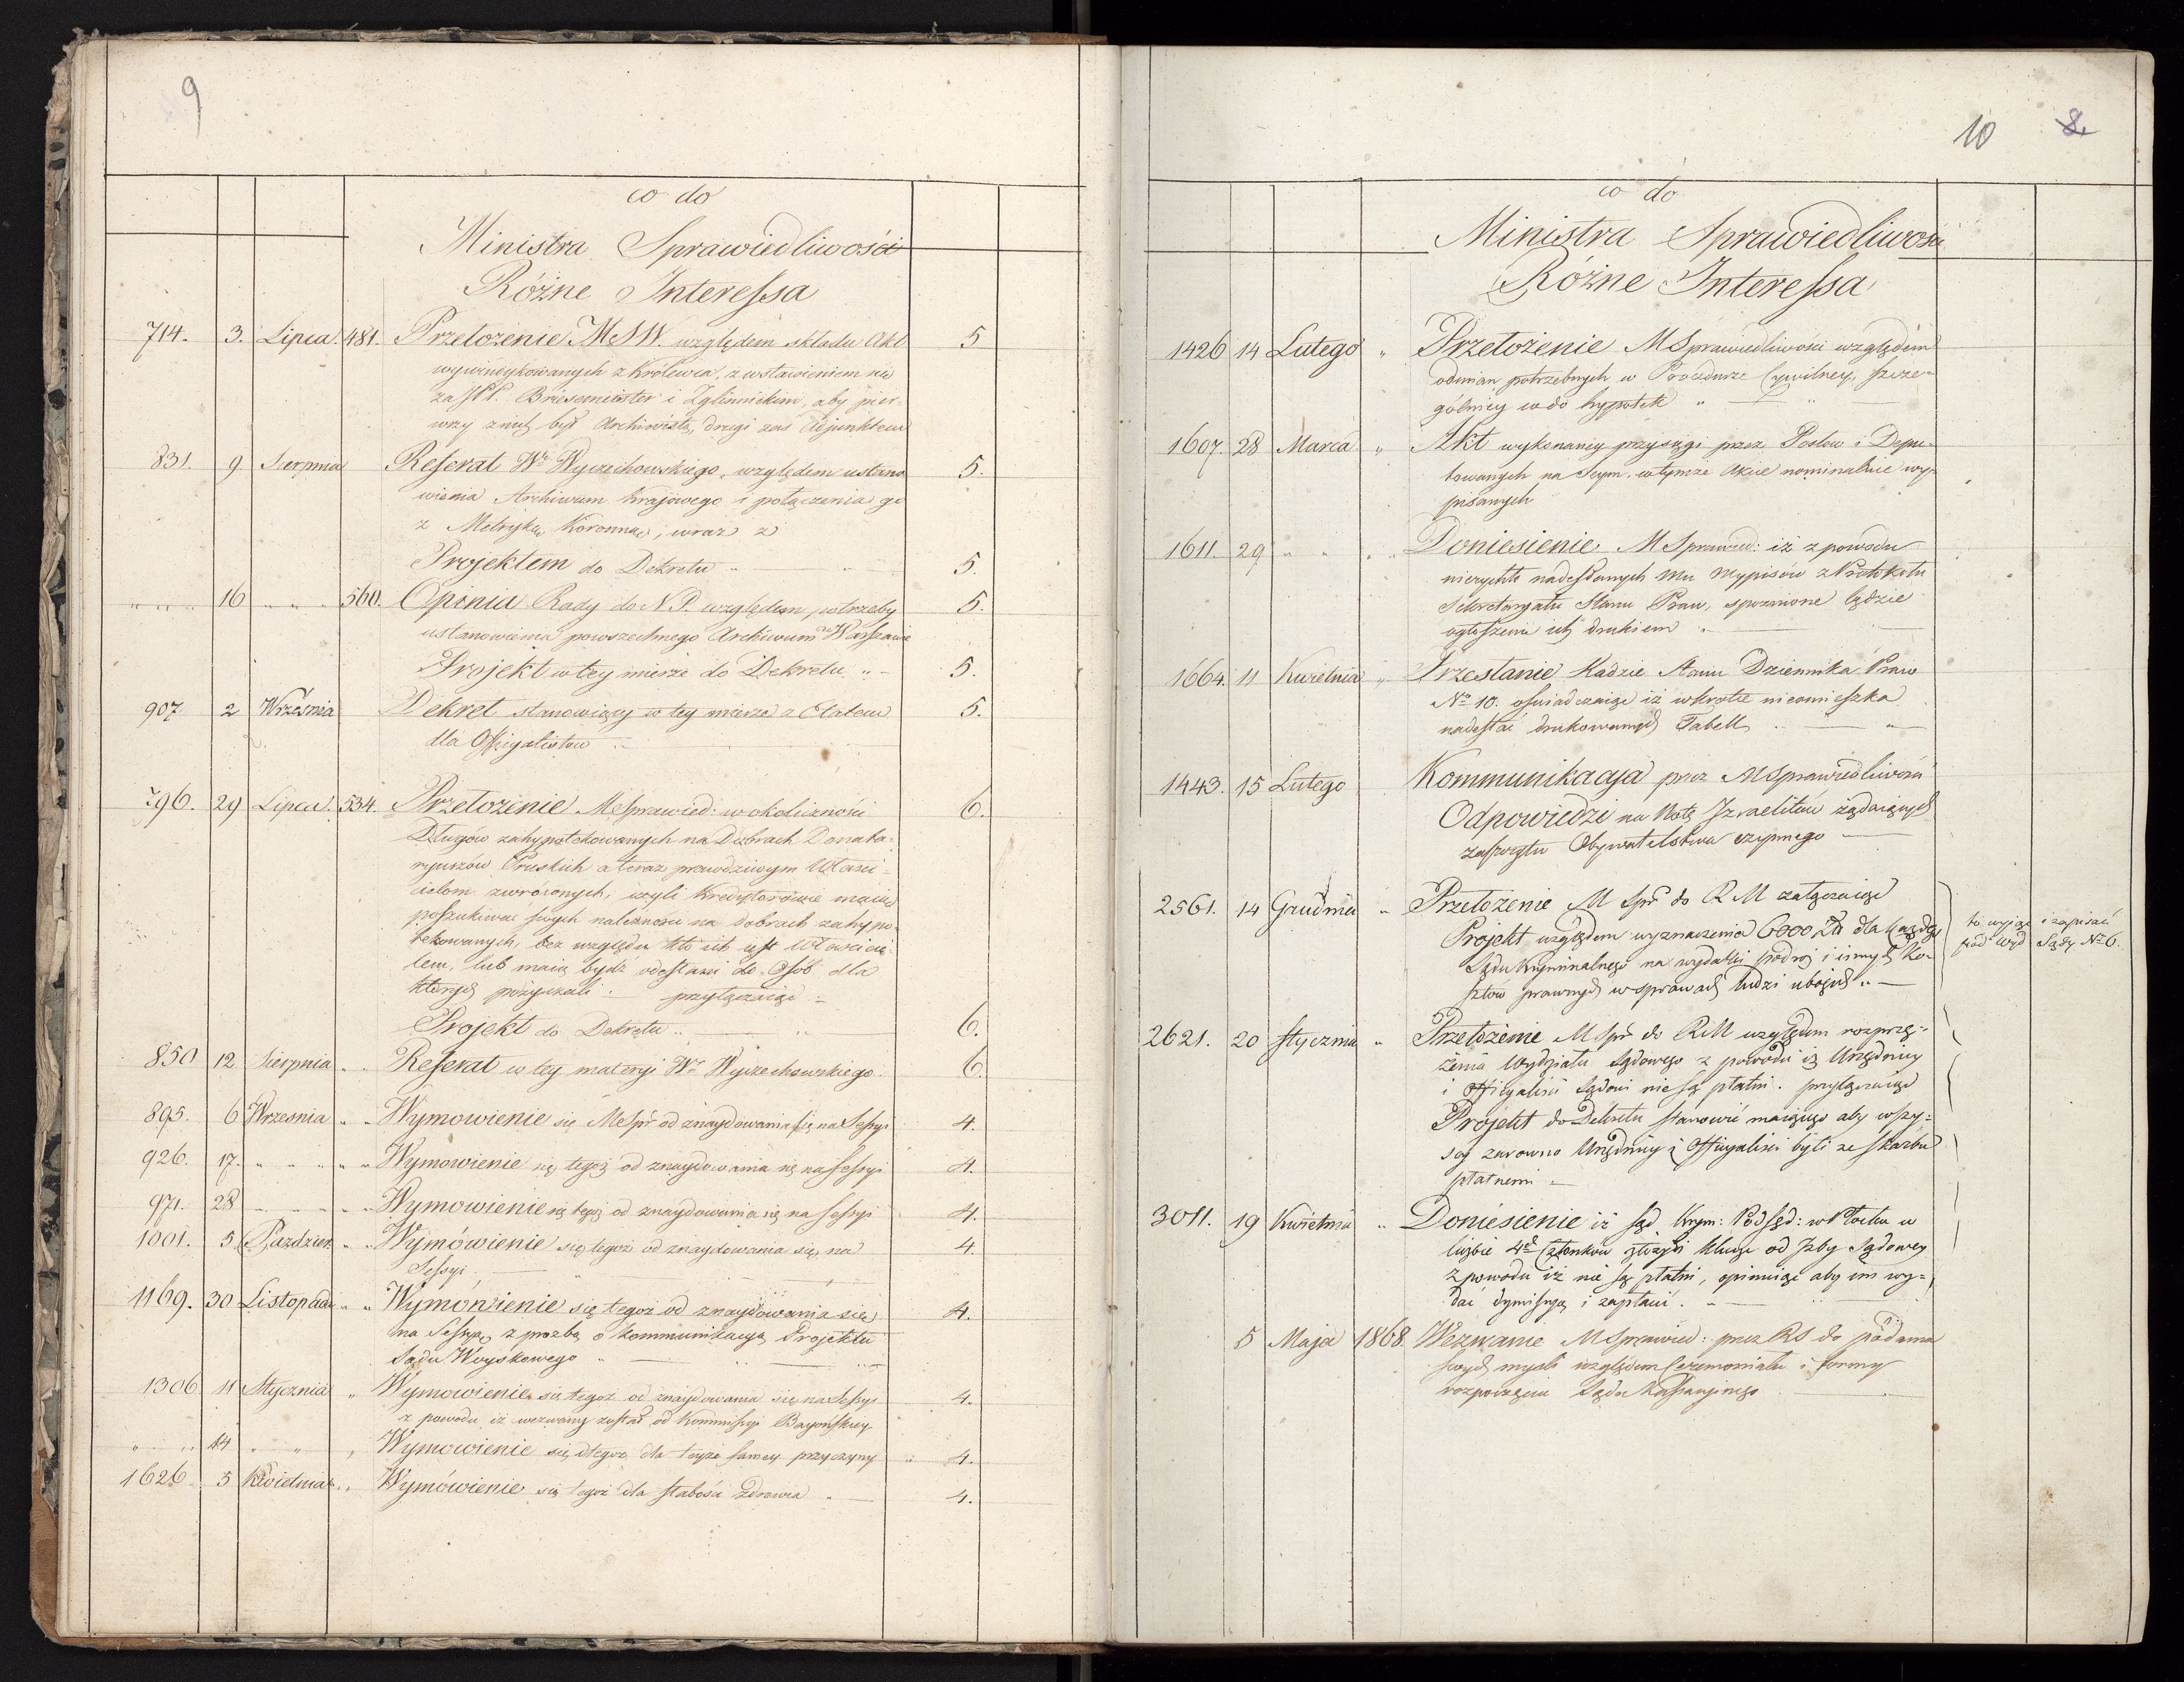 9
co do
Ministra Sprawiedliwości
Różne Interessa
714. 3. Lipca. 481. Przełożenie M.S.W. względem składu Akt 5
wywindykowanych z Królewca, z wstawieniem się
za JPP. Briesemeister i Zglinnickim, aby pier-
wszy z nich był Archiwistą, drugi zaś Adjunktem
831. 9 Sierpnia Referat Wo Wyczechowskiego, względem ustano 5.
wienia Archiwum krajowego i połączenia go
z Metryką Koronną, wraz z
Projektem do Dekretu " " 5.
" " " 16 " " 560. Opinia Rady do N.P. względem potrzeby 5.
ustanowienia powszechnego Archiwum w Warszawie
Projekt w tey mierze do Dekretu " - 5.
907 2 Września Dekret stanowiący w tey mierze z Etatem 5.
dla Officyalistow
796. 29 Lipca. 534. Przełożenie MSprawied: w okoliczności 6.
Długów zahypotekowanych na Dobrach Donata-
ryuszów Pruskich a teraz prawdziwym Właści-
cielom zwróconych, czyli Kredytorowie maią
poszukiwać swych należności na dobrach zahypo-
tekowanych, bez względu kto ich iest Właścicie-
lem, lub maią bydź odesłani do Osób dla
których pożyczali. przyłączaiąc -
Projekt do Dekretu " " 6.
850 12 Sierpnia " " Referat w tey materyi Wo Wyczechowskiego. 6.
895. 6 Wrzesnia " " Wymowienie się MSpr od znaydowania się na Sessyi 4.
926. 17. " " " " Wymowienie się tegoż od znaydowania się na Sessyi 4.
971. 28 " " " " Wymowienie się tegoż od znaydowania się na Sessyi 4.
1001. 5 Pazdzier " " Wymówienie się tegoż od znaydowania się na 4.
Sessyi
1169. 30 Listopada " " Wymówienie się tegoż od znaydowania się 4.
na Sessyą z prozbą o kommunikacyą Projektu
Sądu Woyskowego "
1306 11 Stycznia " Wymowienie się tegoż od znaydowania się na Sessyi 4.
z powodu iż wezwany został od Kommissyi Bayońskiey
" " 14 " " " Wymowienie się tegoż dla teyże samey przyczyny " 4.
1626 5 Kwietnia " " Wymówienie się tegoż dla słabości zdrowia . 4.
10 8.
co do
Ministra Sprawiedliwości
Różne Interessa
1426 14 Lutego " Przełożenie MSprawiedliwości względem
odmian potrzebnych w Procedurze Cywilney, szcze-
gólniey co do hypotek "
1607. 28 Marca " Akt wykonaney przysięgi przez Posłow i Depu-
towanych na Seym, w tymze Akcie nominalnie wy-
pisanych
1611. 29 " " " Doniesienie MSprawied: iż z powodu
nierychło nadesłanych mu Wypisów z Protokołu
Sekretaryatu Stanu Praw, spoznione będzie
ogłoszenie ich drukiem "
1664. 11 Kwietnia " Przesłanie Radzie Stanu Dziennika Praw
No 10. oświadczaiąc iż wkrótce nieomieszka
nadesłać drukowanych Tabell " "
1443. 15 Lutego Kommunikacya przez MSprawiedliwości
Odpowiedzi na Notę Izraelitów żądaiących
zaszczytu Obywatelstwa czynnego
2561. 14 Grudnia " Przełożenie M Spr do R M załączaiąc
Projekt względem wyznaczenia 6000 Zł dla każdego to wyiąć i zapisać
Sądu kryminalnego na wydatki podroż i innych Ko- pod Wyd Sądy No 6.
sztów prawnych w sprawach ludzi ubogich " -
2621. 20 Stycznia " Przełożenie M Spr do RM względem rozprzę-
żenia Wydziału Sądowego z powodu iż Urzędnicy
i Officyaliści Sądowi nie są płatni. przyłączaiąc
Projekt do Dekretu stanowić maiącego aby wszy-
scy zarowno Urzędnicy i Officyaliści byli ze skarbu
płatnemi -
3011. 19 Kwietnia " Doniesienie iż sąd Krym: Podsęd: w Płocku w
liczbie 4ch Członków złożyli klucze od Izby Sądowey
z powodu iż nie są płatni, opiniuiąc aby im wy-
dać dymissyą i zapłacić. "
5 Maja 1868. Wezwanie MSprawied: przez RS do podania
swych mysli względem Ceremoniału i formy
rozpoczęcia Sądu Kassacyinego